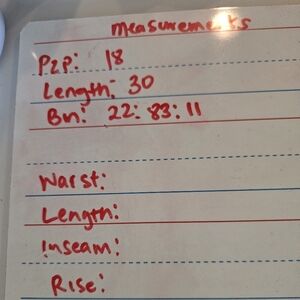 measurements
P2P: 18
Length: 30
Bn: 22:83:11
Waist:
Length:
Inseam:
Rise: